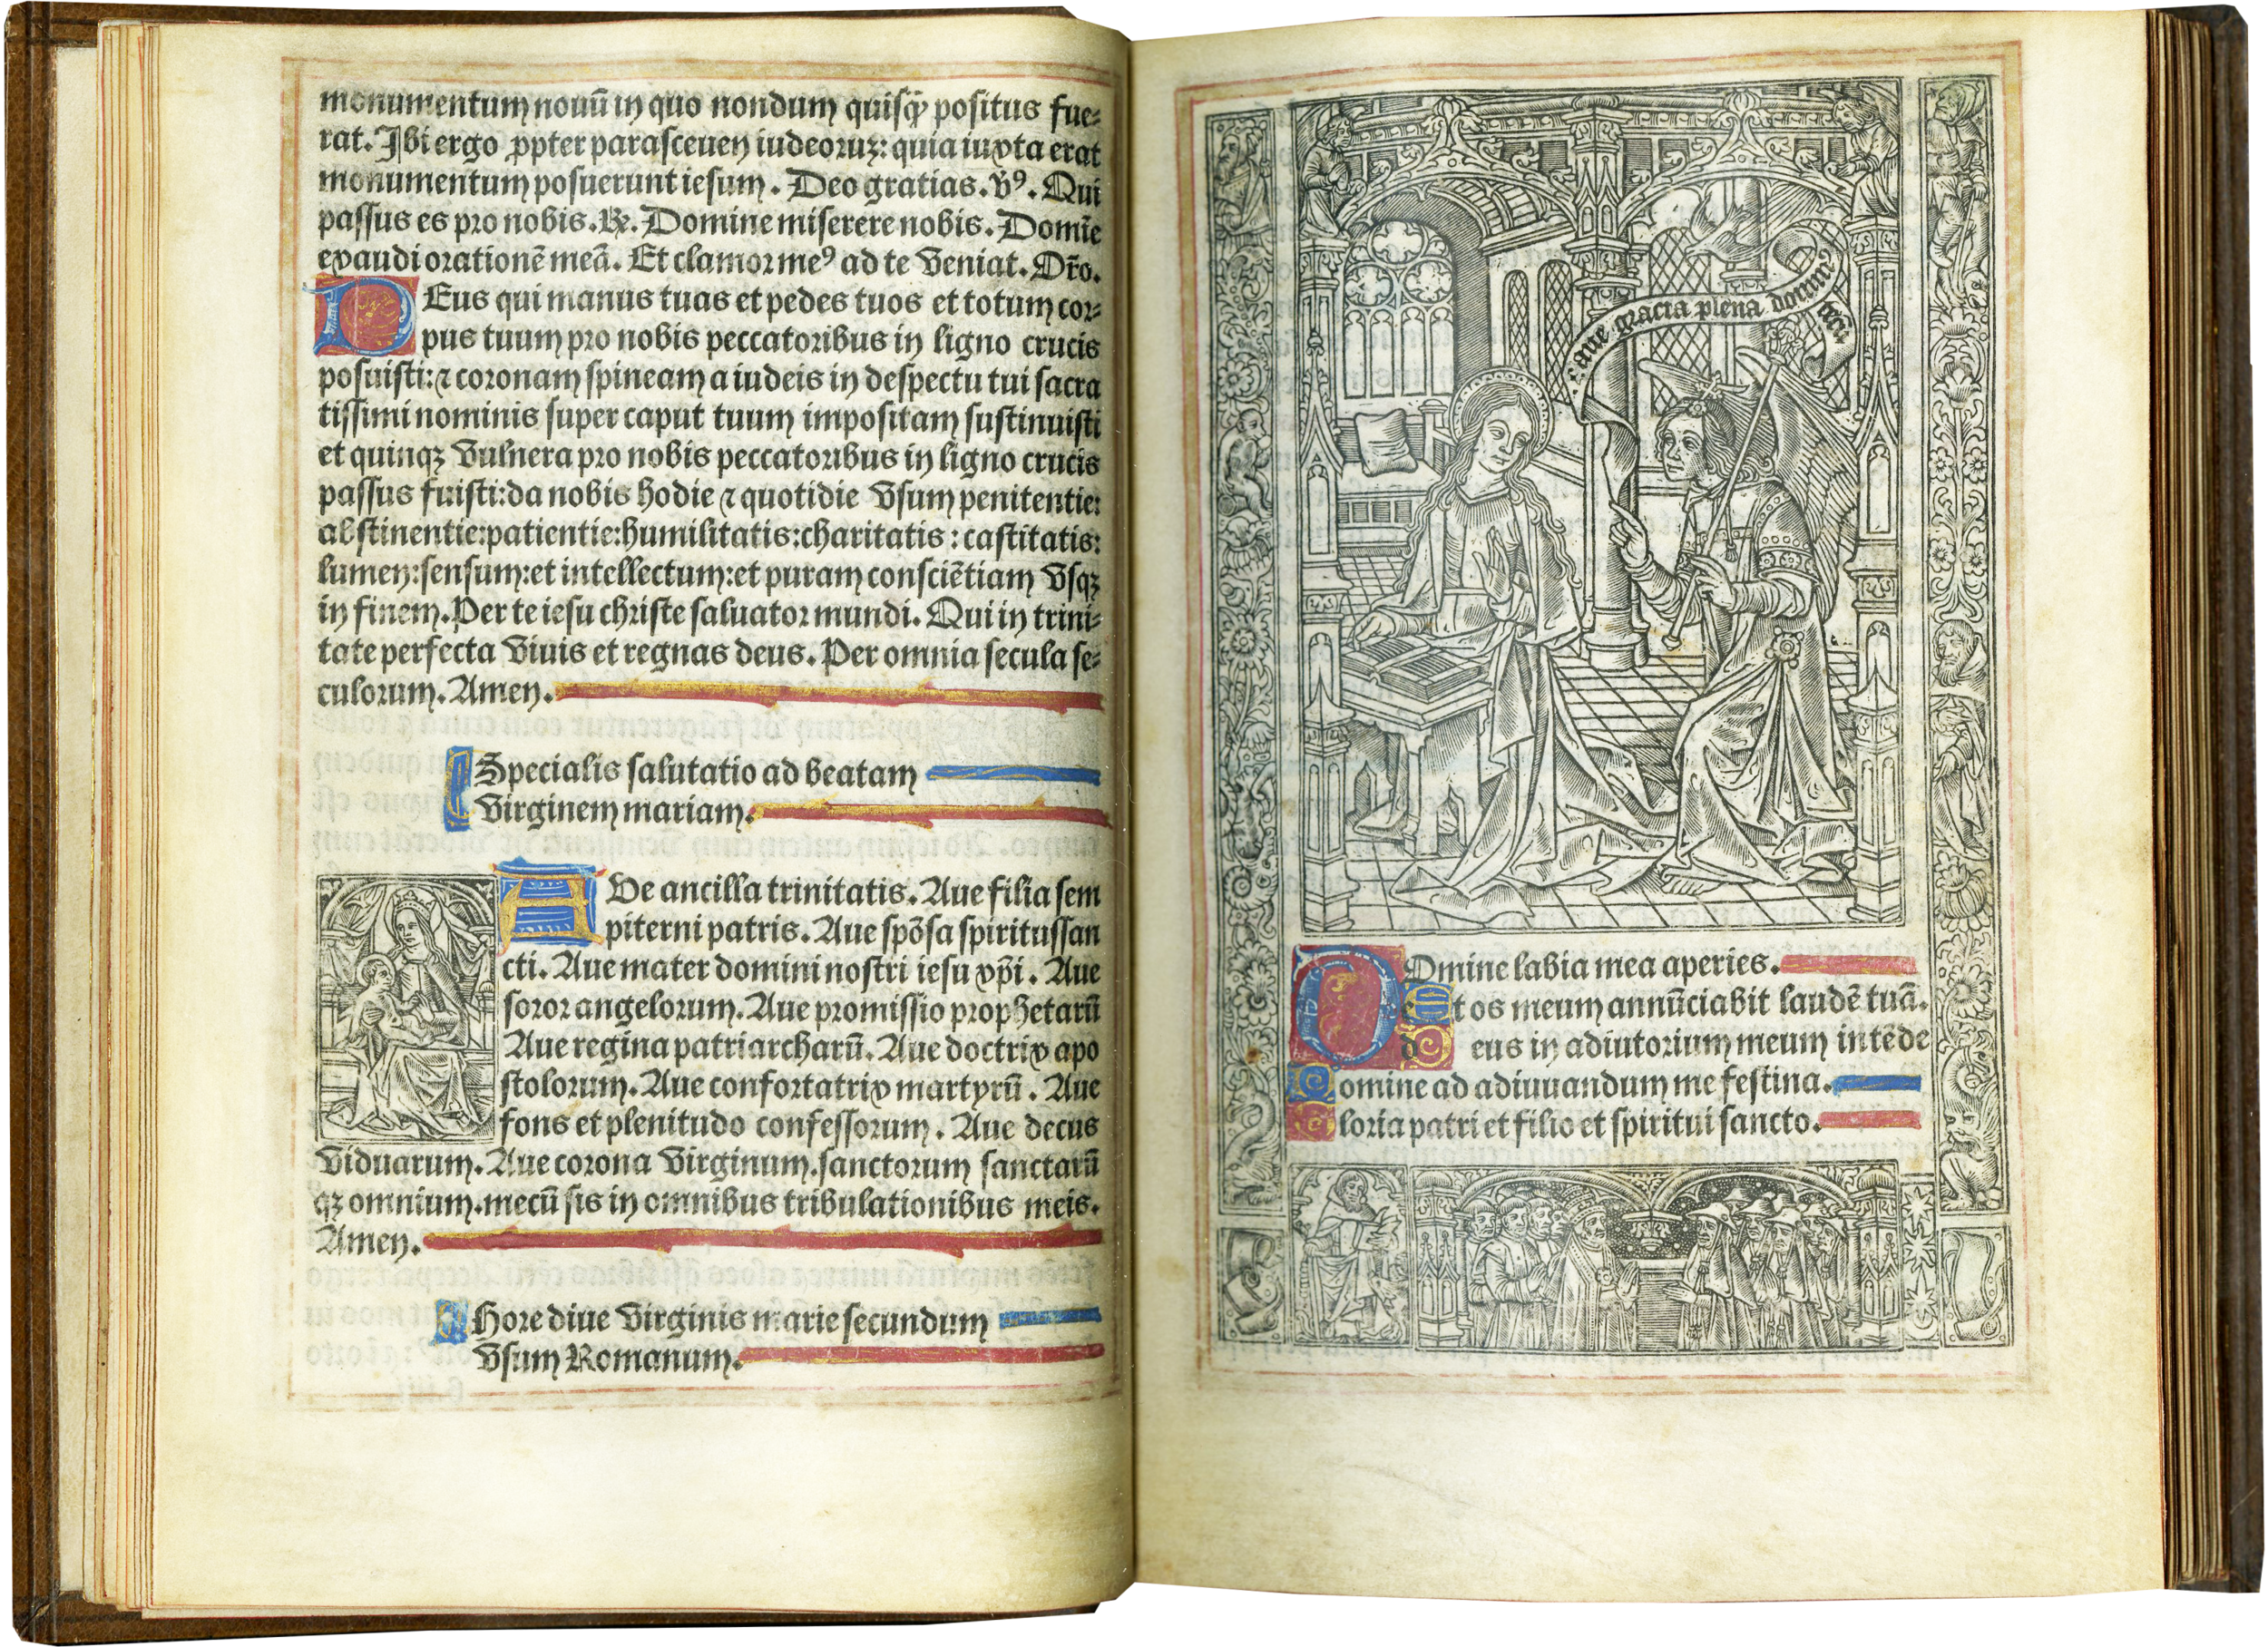 monumentum nouū in quo nondum quisq̄ positus fue⸗
rat. Ibi ergo ꝓpter parasceuen iudeoruꝫ: quia iuxta erat
monumentum posuerunt iesum. Deo gratias. v̄ꝰ. Qui
passus es pro nobis. ℞. Domine miserere nobis. Domīe
exaudi orationē meā. Et clamor meꝰ ad te veniat. Or̄o.
DEus qui manus tuas et pedes tuos et totum cor⸗
pus tuum pro nobis peccatoribus in ligno crucis
posuisti: ⁊ coronam spineam a iudeis in despectu tui sacra
tissimi nominis super caput tuum impositam sustinuisti
et quinqꝫ vulnera pro nobis peccatoribus in ligno crucis
passus fuisti: da nobis hodie ⁊ quotidie vsum penitentie:
abstinentie: patientie: humilitatis: charitatis: castitatis:
lumen: sensum: et intellectum: et puram consciētiam vsqꝫ
in finem. Per te iesu christe saluator mundi. Qui in trini⸗
tate perfecta viuis et regnas deus. Per omnia secula se⸗
culorum. Amen.
Specialis salutatio ad beatam
virginem mariam.
AVe ancilla trinitatis. Aue filia sem
piterni patris. Aue spōsa spiritussan
cti. Aue mater domini nostri iesu xp̄i. Aue
soror angelorum. Aue promissio prophetarū
Aue regina patriarcharū. Aue doctrix apo
stolorum. Aue confortatrix martyrū. Aue
fons et plenitudo confessorum. Aue decus
viduarum. Aue corona virginum. sanctorum sanctarū
qꝫ omnium. mecū sis in omnibus tribulationibus meis.
Amen.
Hore diue virginis marie secundum
vsum Romanum.
aue gracia plena dominꝰ tecū
DOmine labia mea aperies.
Et os meum annūciabit laudē tuā.
deus in adiutorium meum intēde
Domine ad adiuuandum me festina.
Gloria patri et filio et spiritui sancto.